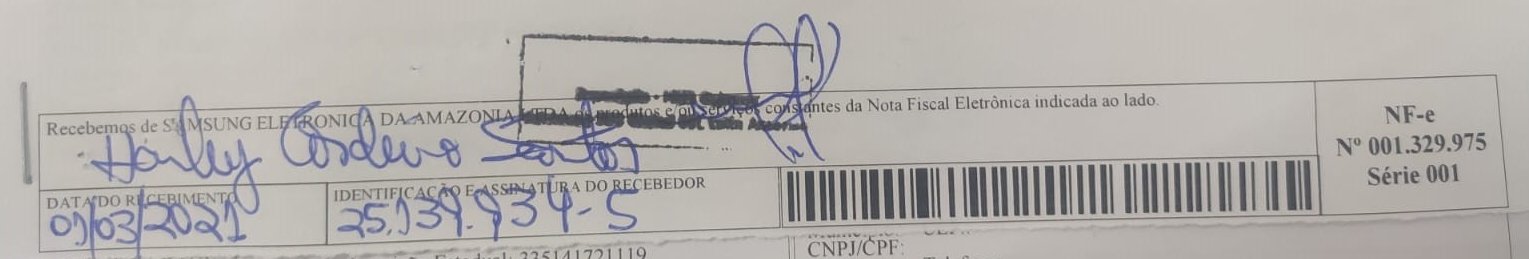 Recebemos de SAMSUNG ELETRONICA DA AMAZONIA LTDA os produtos e/ou serviços constantes da Nota Fiscal Eletrônica indicada ao lado.
Harley Cordeiro Santos
DATA DO RECEBIMENTO
01/03/2021
IDENTIFICAÇÃO E ASSINATURA DO RECEBEDOR
25.139.934-5
NF-e
Nº 001.329.975
Série 001
335141721119
CNPJ/CPF: